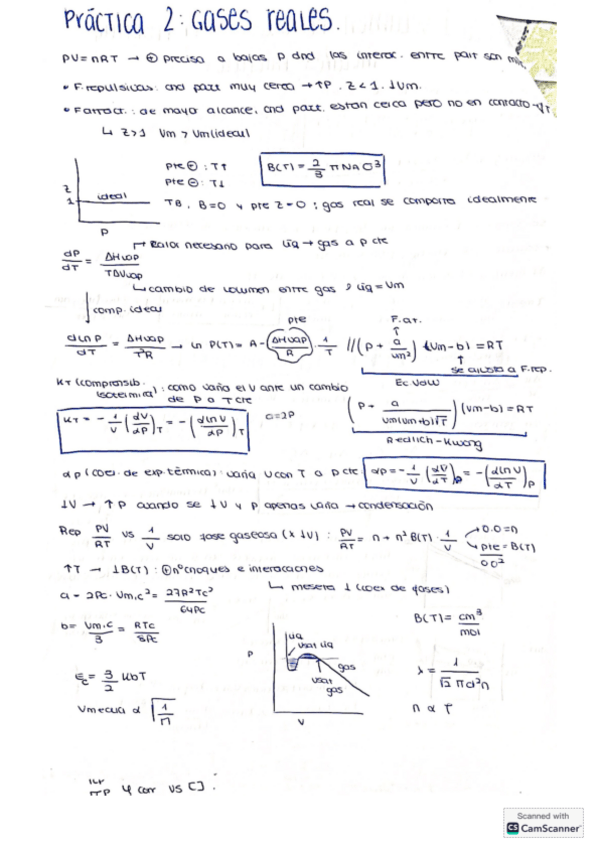 Práctica 2: Gases reales.
PV=nRT → ⊕ preciso a bajas P dnd las interac. entre part son
• F. repulsivas: cnd part muy cerca → ↑P. Z<1. ↓Vm.
• F. atracc.: de mayor alcance, cnd part. estan cerca pero no en contacto
↳ Z>1 Vm > Vm(ideal)
Z
1
ideal
P
pte ⊕ : T↑
pte ⊖ : T↓
B(T) = 2/3 π NA σ³
TB, B=0 y pte Z=0 ; gas real se comporta idealmente
calor necesario para liq → gas a p cte
dP/dT = ΔHvap/TΔVvap
↳ cambio de volumen entre gas y liq = Vm
comp. ideal
pte
F. at.
dlnP/dT = ΔHvap/T²R → ln P(T) = A - ΔHvap/R · 1/T // (P + a/Vm²) (Vm-b) = RT
se ajusta a F. rep.
Ec VdW
KT (comprensib. isotermica): como varia el V ante un cambio
de P a T cte
KT = - 1/V (dV/dP)T = - (dlnV/dP)T
(P + a/Vm(Vm+b)√T) (Vm-b) = RT
Redlich-Kwong
αp (coef. de exp. térmica): varia V con T a p cte.
αp = - 1/V (dV/dT)p = - (dlnV/dT)p
↓V → ↑P cuando se ↓V y P apenas varia → condensación
Rep PV/RT vs 1/V solo fase gaseosa (x ↓V) : PV/RT = n + n² B(T) · 1/V
→ O.O = n
↳ pte = B(T)
↑T → ↓B(T) : ⊕ nº choques e interacciones
↳ meseta ↓ (coex de fases)
a = 2Pc · Vm,c² = 27R²Tc²/64Pc
b = Vm,c/3 = RTc/8Pc
B(T) = cm³/mol
Ec = 3/2 KbT
P
liq
Vsat liq
gas
Vsat gas
V
λ = 1/√2 π d² n
Vmecua α √1/M
n α T
4 corr vs C] :
Scanned with
CS CamScanner